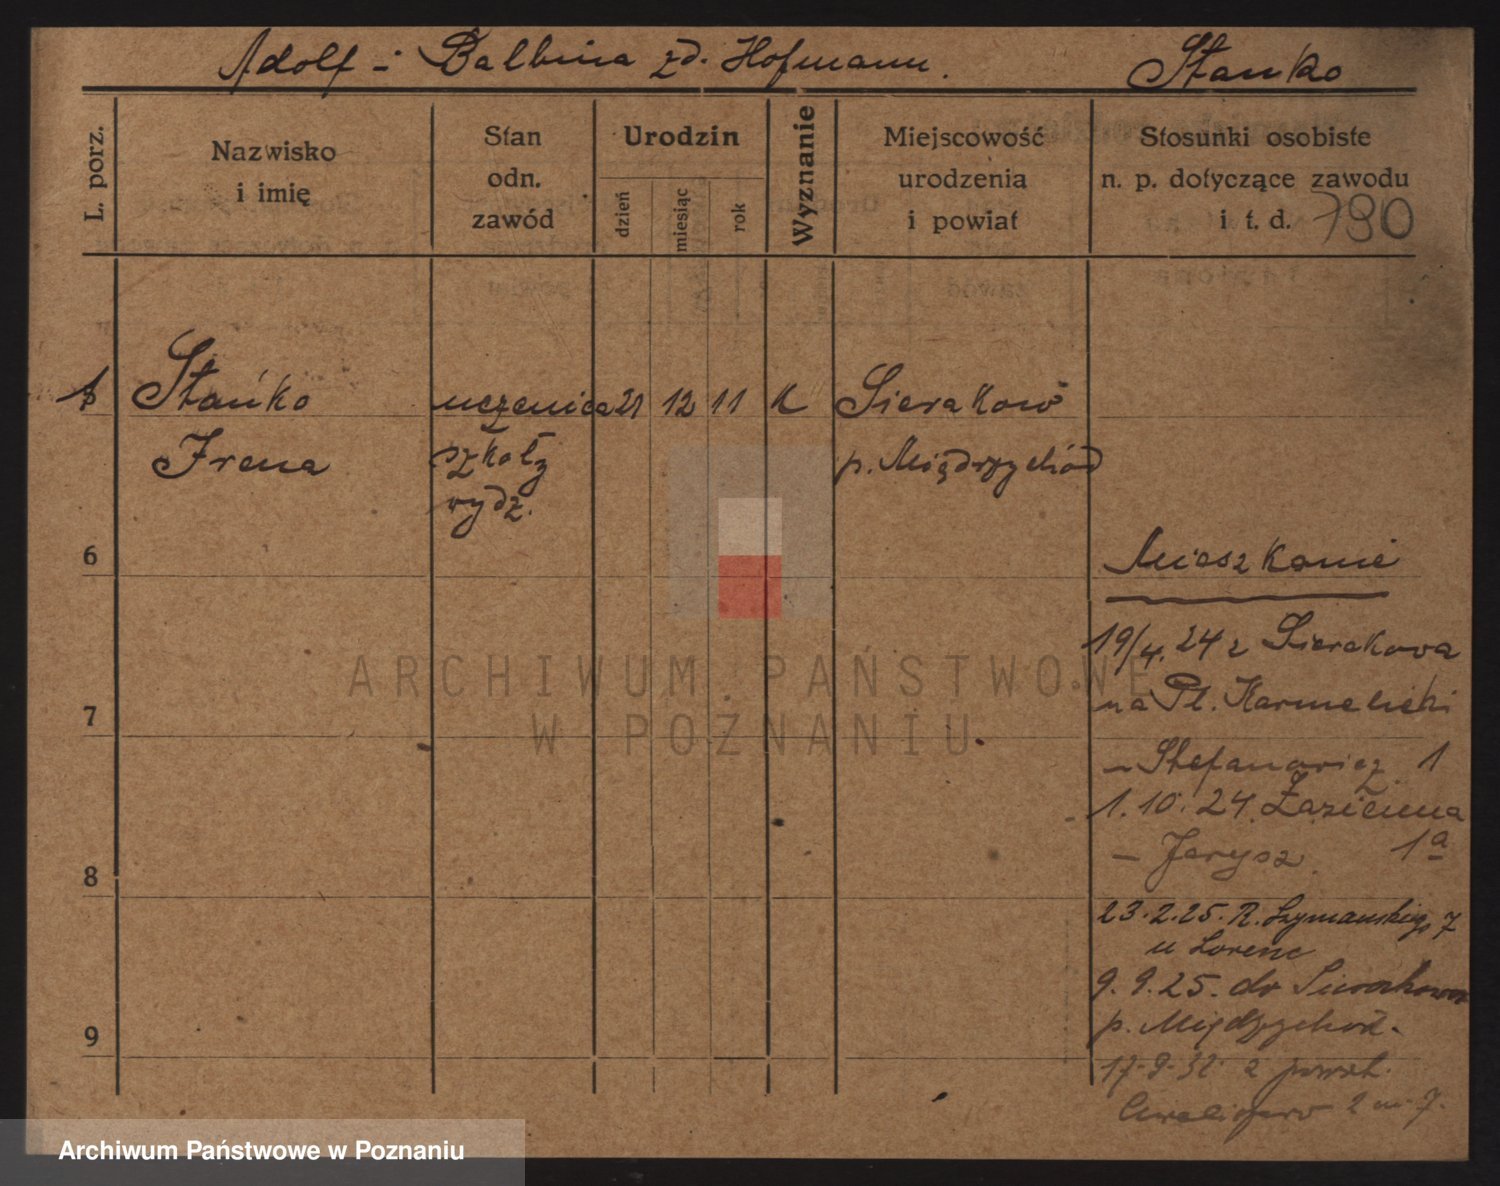 Adolf - Balbina zd. Hofmann. Stańko
L. porz.
Nazwisko
i imię
Stan
odn.
zawód
Urodzin
dzień
miesiąc
rok
Wyznanie
Miejscowość
urodzenia
i powiat
Stosunki osobiste
n. p. dotyczące zawodu
i t. d. 190
Stańko uczenica 21 12 11 K Sieraków
Irena szkoły p. Międzychód
wydz.
6
Mieszkanie
19/4. 24 z Sierakowa
7
na Pl. Karmelicki
- Stefanowicz 1
1. 10. 24. Łazienna
- Jarysz 1a
8
23. 2. 25. R. Szymańskiego 7
u Lorenc
9. 9. 25. do Sierakowa
9
p. Międzychód.
17. 9. 32 z
2 m. 7.
ARCHIWUM PAŃSTWOWE
W POZNANIU
Archiwum Państwowe w Poznaniu